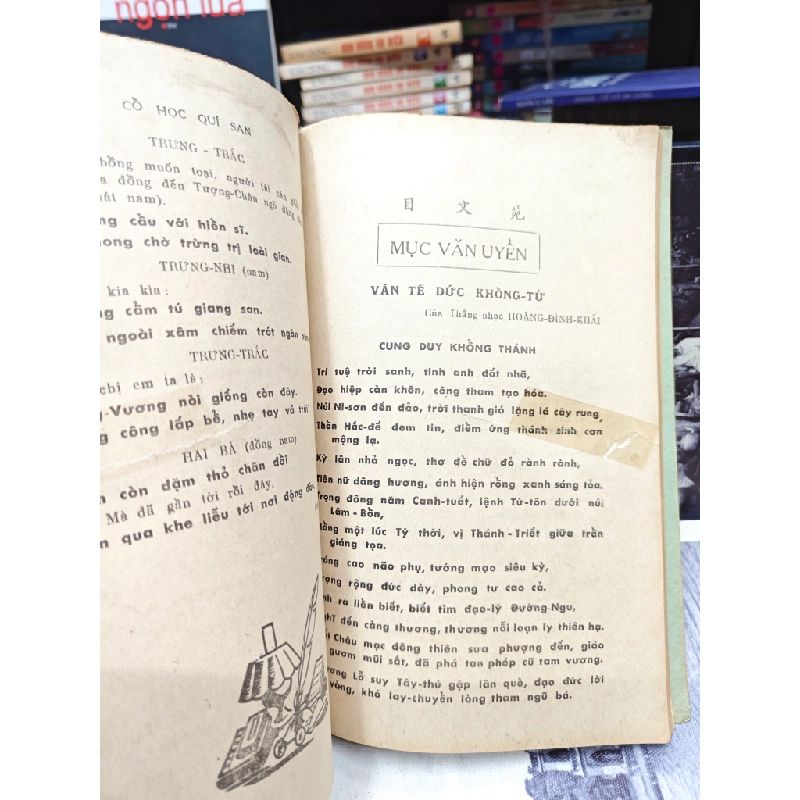 ngôn lửa
CỔ HỌC QUÍ SAN
TRƯNG - TRẮC
hồng muôn loại, người tài cần phải
a đồng đến Tượng-Châu ngõ dùng
ải nam).
ng cầu với hiền sĩ.
ong chờ trừng trị loài gian.
TRƯNG-NHỊ (nam)
kia kìa :
ng cẩm tú giang san.
ngoài xâm chiếm trót ngàn năm
TRƯNG-TRẮC
chị em ta là :
g-Vương nòi giống còn đây.
g công lấp bể, nhẹ tay vá trời
HAI BÀ (đồng nam)
n còn dặm thỏ chân dồi
Mà đã gần tới rồi đây.
n qua khe liễu tới nơi động đào
目 文 苑
MỤC VĂN UYỂN
VĂN TẾ ĐỨC KHỔNG-TỬ
Của Thắng-nhạc HOÀNG-ĐÌNH-KHẢI
CUNG DUY KHỔNG THÁNH
Trí tuệ trời sanh, tinh anh đất nhã,
Đạo hiệp càn khôn, công tham tạo hóa.
Núi Ni-sơn đến dảo, trời thanh gió lặng lá cây rung,
Thần Hắc-đế đem tin, điềm ứng thánh sinh cơn
mộng lạ.
Kỳ lân nhả ngọc, thơ đề chữ đỏ rành rành,
Tiên nữ dâng hương, ánh hiện rồng xanh sáng tỏa.
Trọng đông năm Canh-tuất, lệnh Từ-tôn dưới núi
Lâm - Bồn,
Hồng một lúc Tý thời, vị Thánh - Triết giữa trần
giáng tọa.
áng cao não phụ, tướng mạo siêu kỳ,
ượng rộng đức dày, phong tư cao cả.
nh ra liền biết, biết tìm đạo-lý Đường-Ngu,
ghĩ đến càng thương, thương nỗi loạn ly thiên hạ.
t Châu mạc đông thiên sưa phượng đến, giáo
gươm mũi sắt, đã phá tan phép cũ tam vương.
ương Lỗ suy Tây-thú gặp lân què, đạo đức lời
vàng, khó lay-chuyển lòng tham ngũ bá.